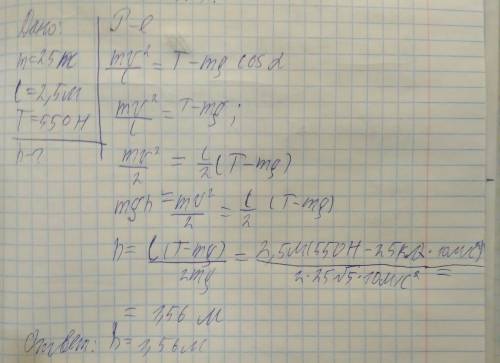 Дано:
m=25 кг
l=2,5м
T=550Н
h-?
Р-е
mv²/l = T-mg cosα
mv²/l = T-mg;
mv²/2 = l/2 (T-mg)
mgh = mv²/2 = l/2 (T-mg)
h = l(T-mg)/2mg = 2,5м(550Н-25кг·10м/с²)/2·25кг·10м/с² =
= 1,56 м
Ответ: h=1,56м